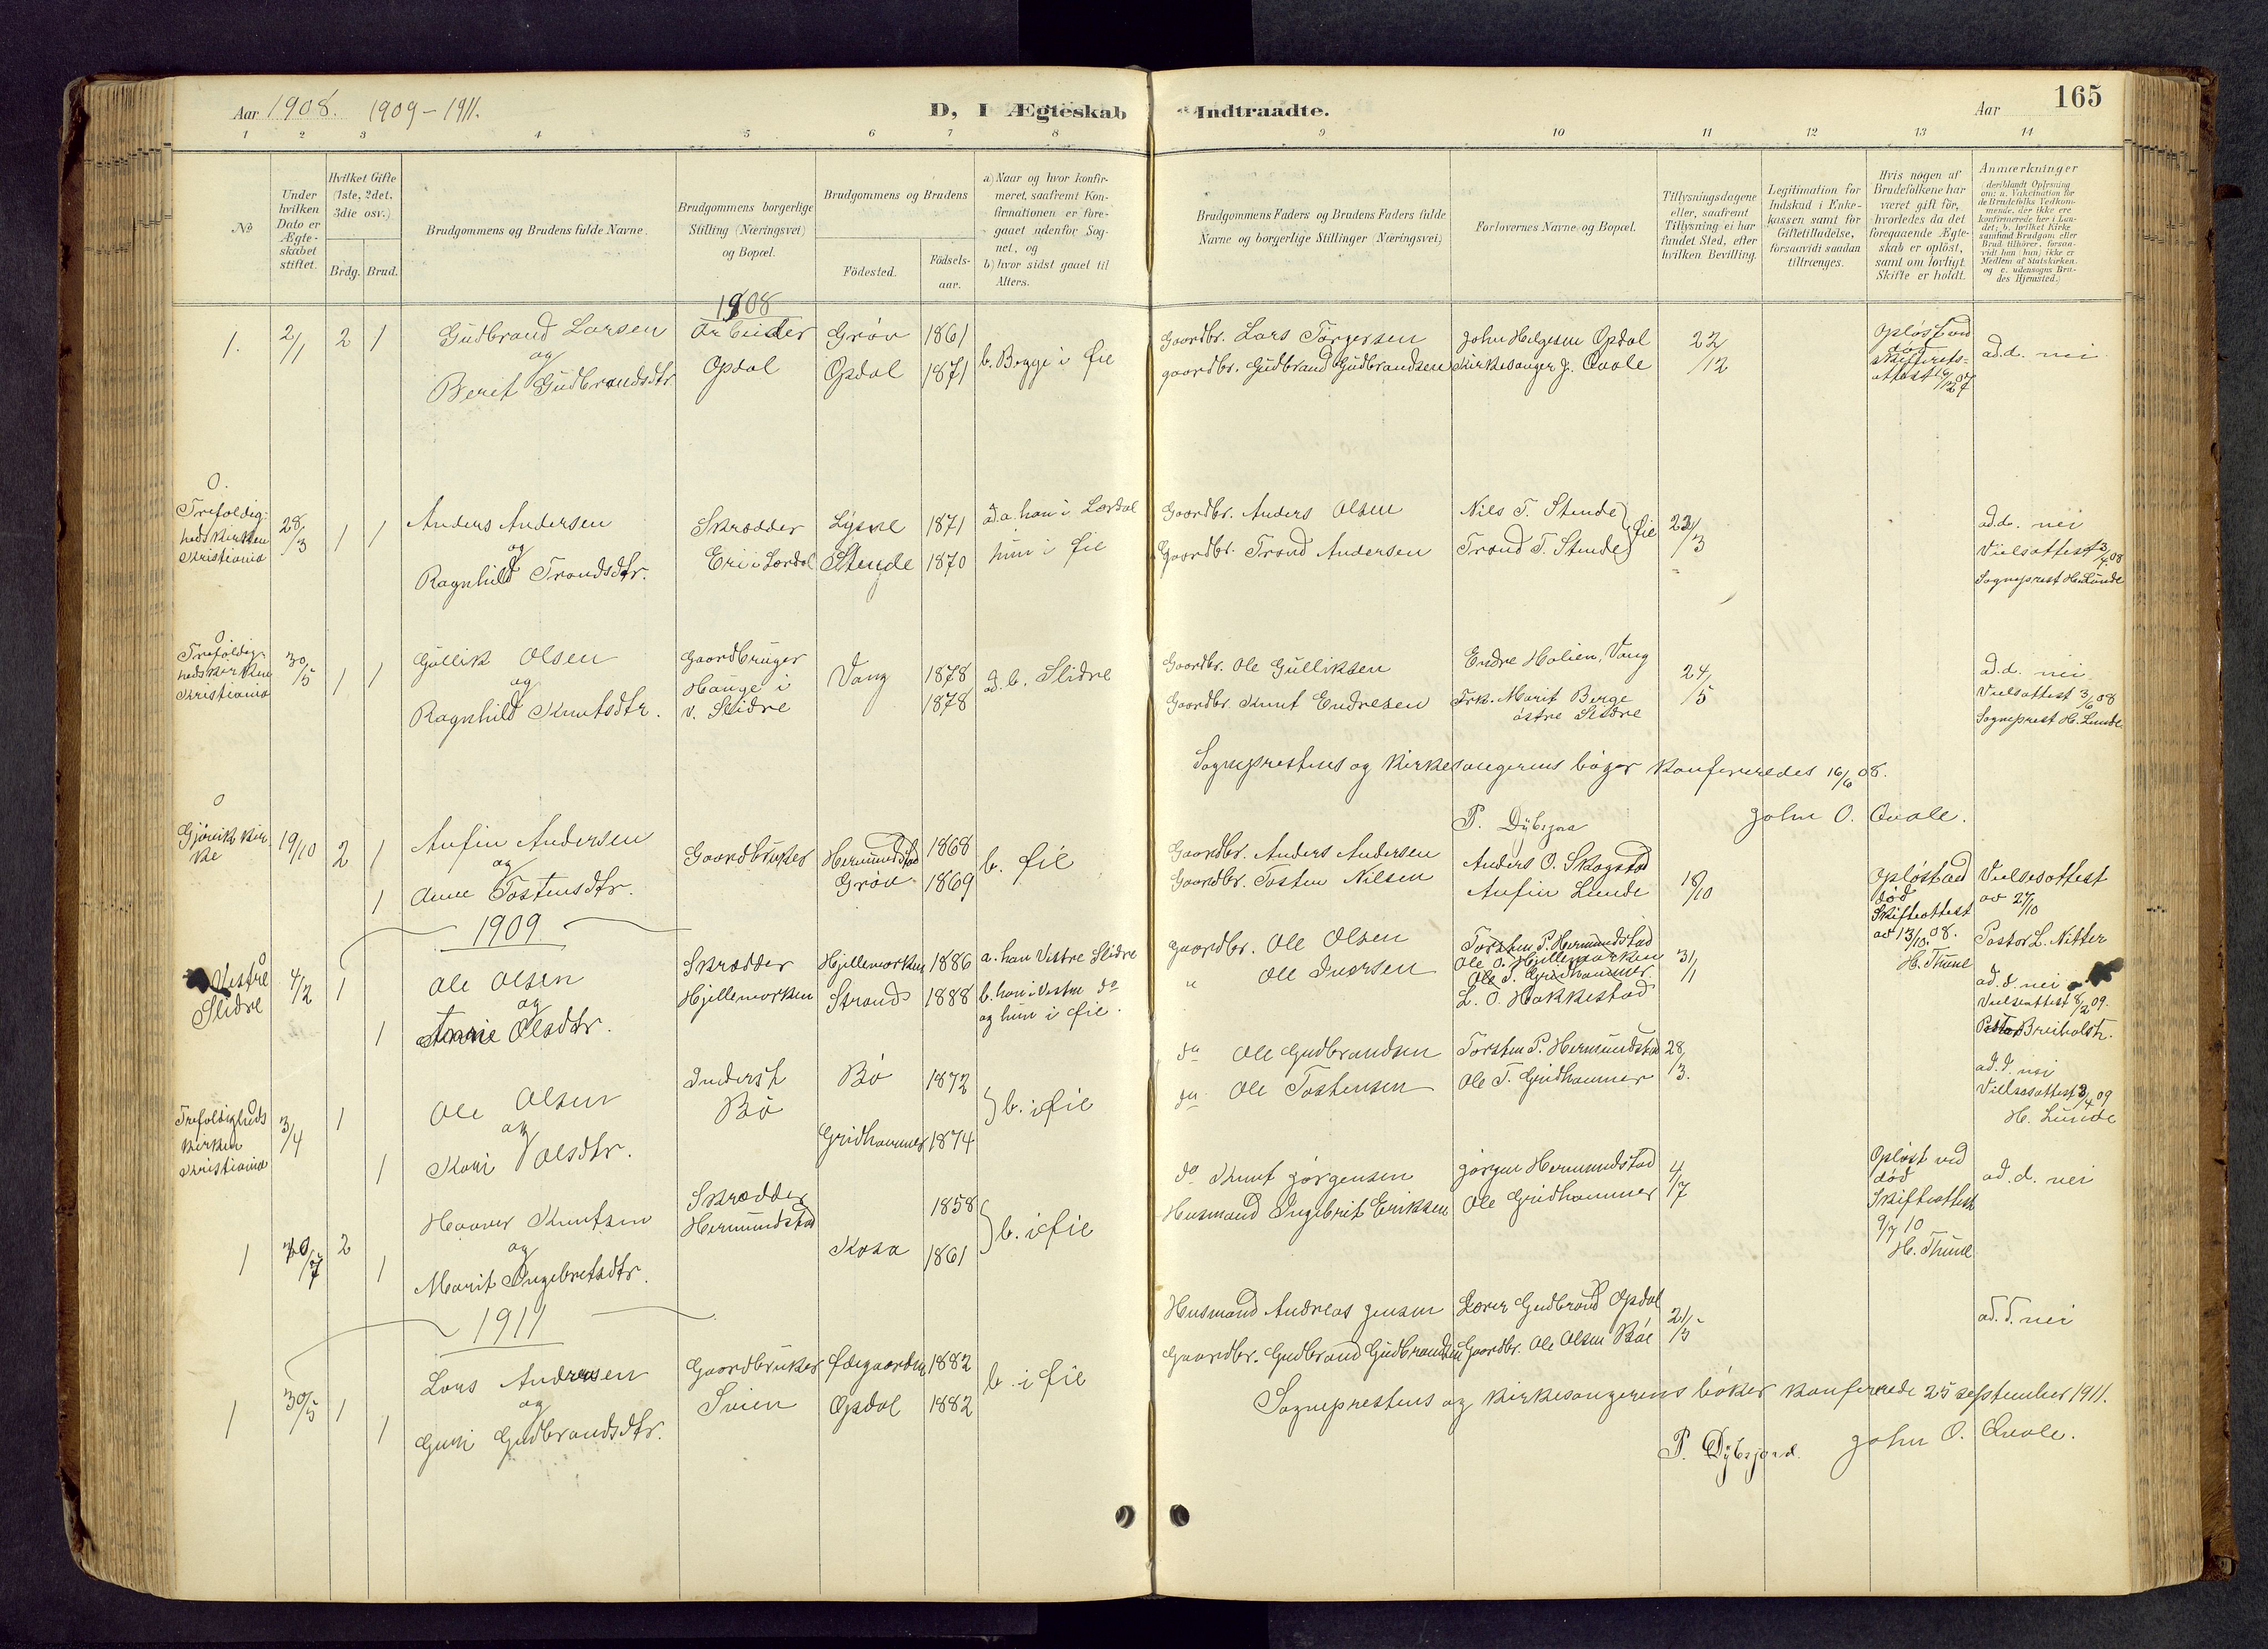 Aar 1908. 1909-1911.
D, I Ægteskab Indtraadte.
Aar
165
1 2 3 4 5 6 7 8 9 10 11 12 13 14
No
Under hvilken Dato er Ægteskabet stiftet.
Hvilket Gifte (1ste, 2det, 3die osv.)
Brdg. Brud.
Brudgommens og Brudens fulde Navne.
Brudgommens borgerlige Stilling (Næringsvei) og Bopæl.
Brudgommens og Brudens
Födested.
Födsels-aar.
a) Naar og hvor konfirmeret, saafremt Konfirmationen er foregaaet udenfor Sognet, og
b) hvor sidst gaaet til Alters.
Brudgommens Faders og Brudens Faders fulde Navne og borgerlige Stillinger (Næringsvei)
Forlovernes Navne og Bopæl.
Tillysningsdagene eller, saafremt Tillysning ei har fundet Sted, efter hvilken Bevilling.
Legitimation for Indskud i Enkekassen samt for Giftetilladelse, forsaavidt saadan tiltrænges.
Hvis nogen af Brudefolkene har været gift för, hvorledes da det foregaaende Ægteskab er oplöst, samt om lovligt Skifte er holdt.
Anmærkninger
(deriblandt Oplysning om: a. Vakcination for de Brudefolks Vedkommende, der ikke ere konfirmerede her i Landet; b. hvilket Kirkesamfund Brudgom eller Brud tilhører, forsaavidt han (hun) ikke er Medlem af Statskirken, og c. udensogns Brudes Hjemsted.)
1908
1. 2/1 2 1 Gudbrand Larsen Arbeider Grøv 1861 b. Begge i Øie Gaardbr. Lars Torgersen John Helgesen Opdal 22/12 Opløst ved død ad.d. nei
og
Berit Gudbrandsdtr. Opdal Opdal 1871 gaardbr. Gudbrand Gudbrandsen Kirkesanger J. Qvale Skifterets-attest 16/12 07
0.
Trefoldighedskirken Kristiania 28/3 1 1 Anders Andersen Skrædder Lysne 1871 ad.a. han i Lærdal Gaardbr. Anders Olsen Nils T. Stende Øie 22/3 ad.d. nei
og
Ragnhild Trondsdtr. Eri i Lærdal Stende 1870 hun i Øie Gaardbr. Trond Andersen Trond T. Stende Vielsattest 3/4 08
Sogneprest H. Lunde
0
Trefoldighedskirken Kristiania 30/5 1 1 Gullik Olsen Gaardbruger Vang 1878 ad. b. Slidre Gaardbr. Ole Gulliksen Endre Holien, Vang 24/5 ad.d. nei.
og
Hauge i
Ragnhild Knutsdtr. v. Slidre 1878 Gaardbr. Knut Endresen Frk. Marit Berge østre Slidre Vielsattest 3/6 08
Sogneprest H. Lunde.
Sogneprestens og Kirkesangerens bøger konfereredes 16/6 08.
P. Dybsjord John O. Qvale.
0
Gjøvik kirke 19/10 2 1 Anfin Andersen Gaardbruker Hermundstad 1868 b. Øie Gaardbr. Anders Andersen Anders O. Skogstad 18/10 Opløst ved død Vielsesattest av 27/10
og
1 Anne Tostensdtr. Grøv 1869 Gaardbr. Tosten Nilsen Anfin Lunde Skifteattest av 13/10 08. H. Thune Pastor L. Nitter
1909
0
Vestre Slidre 4/2 1 Ole Olsen Skrædder Hjellemorken 1886 a. han Vestre Slidre gaardbr. Ole Olsen Torsten P. Hermundstad 31/1 ad.d. nei
og
Ole O. Hjellemorken
1 Anne Olsdtr. Hjellemorken Strand 1888 b. han i Vestre do og hun i Øie. " Ole Iversen Ole T. Gridhammer Vielseattest 8/2 09.
L. O. Hakkestad
Pastor Breiholtz.
Trefoldigheds kirken Kristiania 3/4 1 Ole Olsen Inderst Bø 1872 b. i Øie do Ole Gudbrandsen Torsten P. Hermundstad 28/3. ad.d. nei
og
Bø
1 Kari Olsdtr. Gridhammer 1874 do Ole Tostensen Ole T. Gridhammer Vielsesattest 3/4 09
H. Lunde
1 20/7 2 Haaver Knutsen Skrædder 1858 b. i Øie do Knut Jørgensen Jørgen Hermundstad 4/7 Opløst ved død ad.d. nei
og
Hermundstad
1 Marit Ingebretsdtr. Kosa 1861 Husmand Ingebrit Eriksen Ole Gridhammer Skifteattest 9/7 10
H. Thune
1911
1 30/5 1 Lars Andersen Gaardbruker Ødegaarden 1882 b. i Øie Husmand Andreas Jensen Lærer Gudbrand Opdal 21/5 ad.d. nei
og
1 Guri Gudbrandsdtr. Svien Opdal 1882 Gaardbr. Gudbrand Gudbrandsen Gaardbr. Ole Olsen Bøe
Sogneprestens og kirkesangerens bøker konferede 25 september 1911.
P. Dybsjord. John O. Qvale.